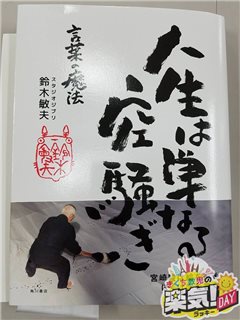 人生は単なる
空騒ぎ
言葉の魔法
スタジオジブリ
鈴木敏夫
宮崎
角川書店
楽気!
ラッキー
DAY